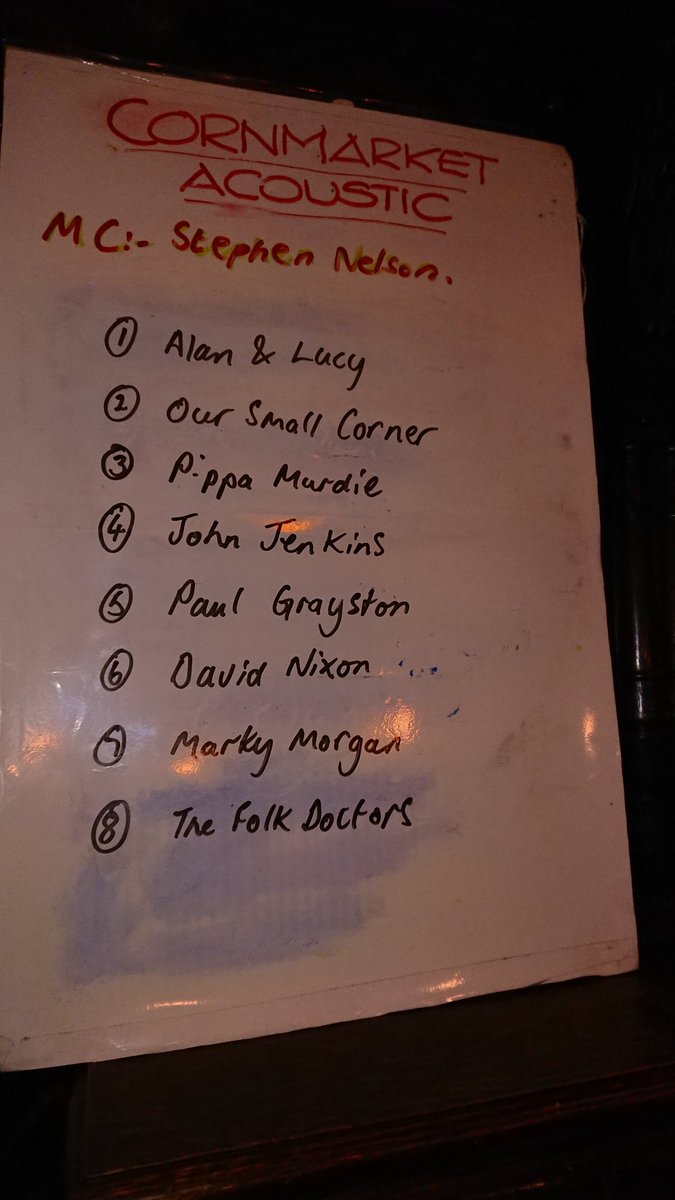 CORNMARKET
ACOUSTIC
MC:- Stephen Nelson.
1 Alan & Lucy
2 Our Small Corner
3 Pippa Murdie
4 John Jenkins
5 Paul Grayston
6 David Nixon
7 Marky Morgan
8 The Folk Doctors